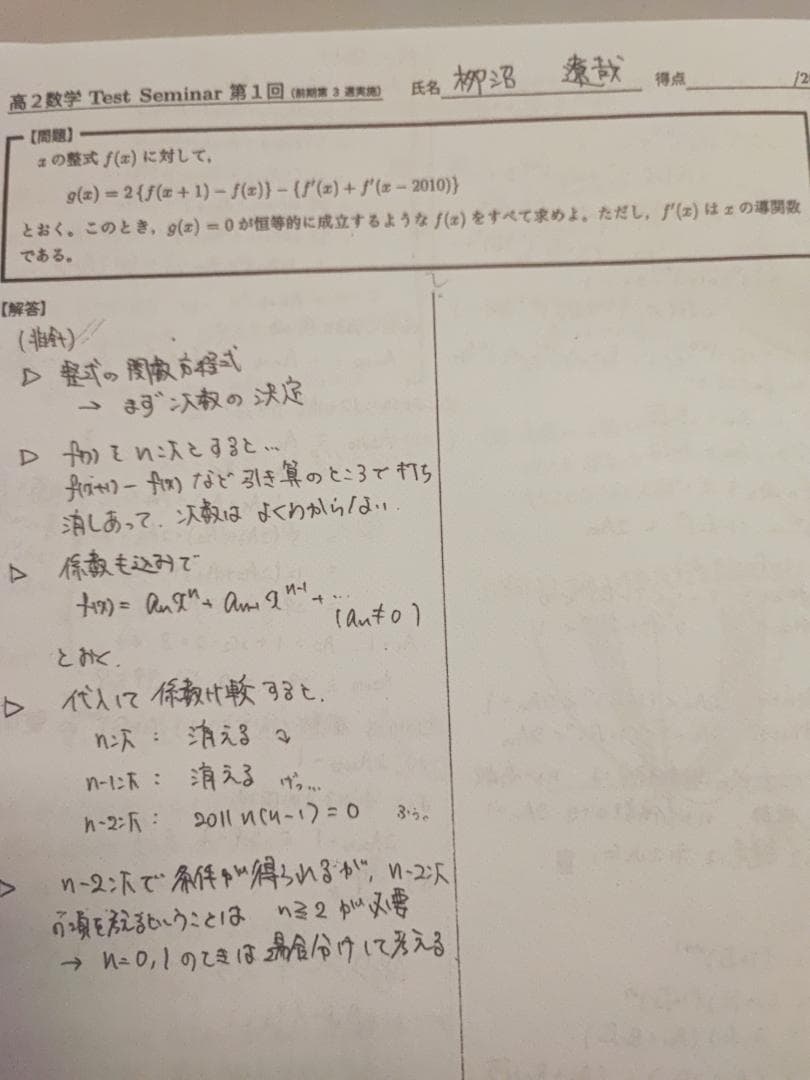 高2数学 Test Seminar 第1回 (前期第 3 週実施) 氏名 柳沼 遼哉 得点 /2
【問題】
x の整式 f(x) に対して,
g(x) = 2{f(x+1) − f(x)} − {f′(x) + f′(x − 2010)}
とおく。このとき, g(x) = 0 が恒等的に成立するような f(x) をすべて求めよ。ただし, f′(x) は x の導関数
である。
【解答】
(指針)
▷ 整式の関数方程式
→ まず次数の決定
▷ f(x) を n次とすると…
f(x+1) − f(x) など引き算のところで打ち
消しあって、次数はよくわからない.
▷ 係数も込みで
f(x) = anx^n + an-1 x^n-1 + …
(an ≠ 0)
とおく.
▷ 代入して係数比較すると、
n次 : 消える
n-1次 : 消える げっ…
n-2次 : 2011 n(n-1) = 0 ふぅ。
▷ n-2次で条件が得られるが, n-2次
の項を考えるということは n≧2 が必要
→ n=0,1 のときは場合分けして考える